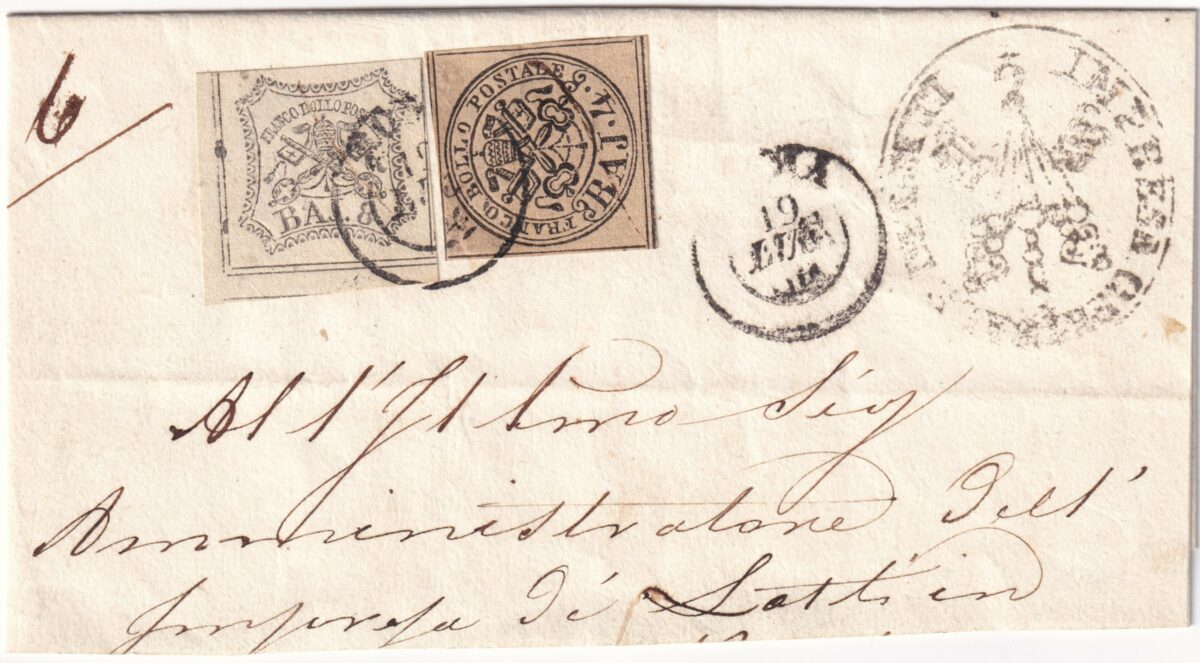 6
FRANCO BOLLO POSTALE
BAJ. 8
FRANCO BOLLO POSTALE
BAJ. 4
19
LUG
IMPRESA
All'Illmo Sig
Amministratore Dell'
Impresa di Lotti in